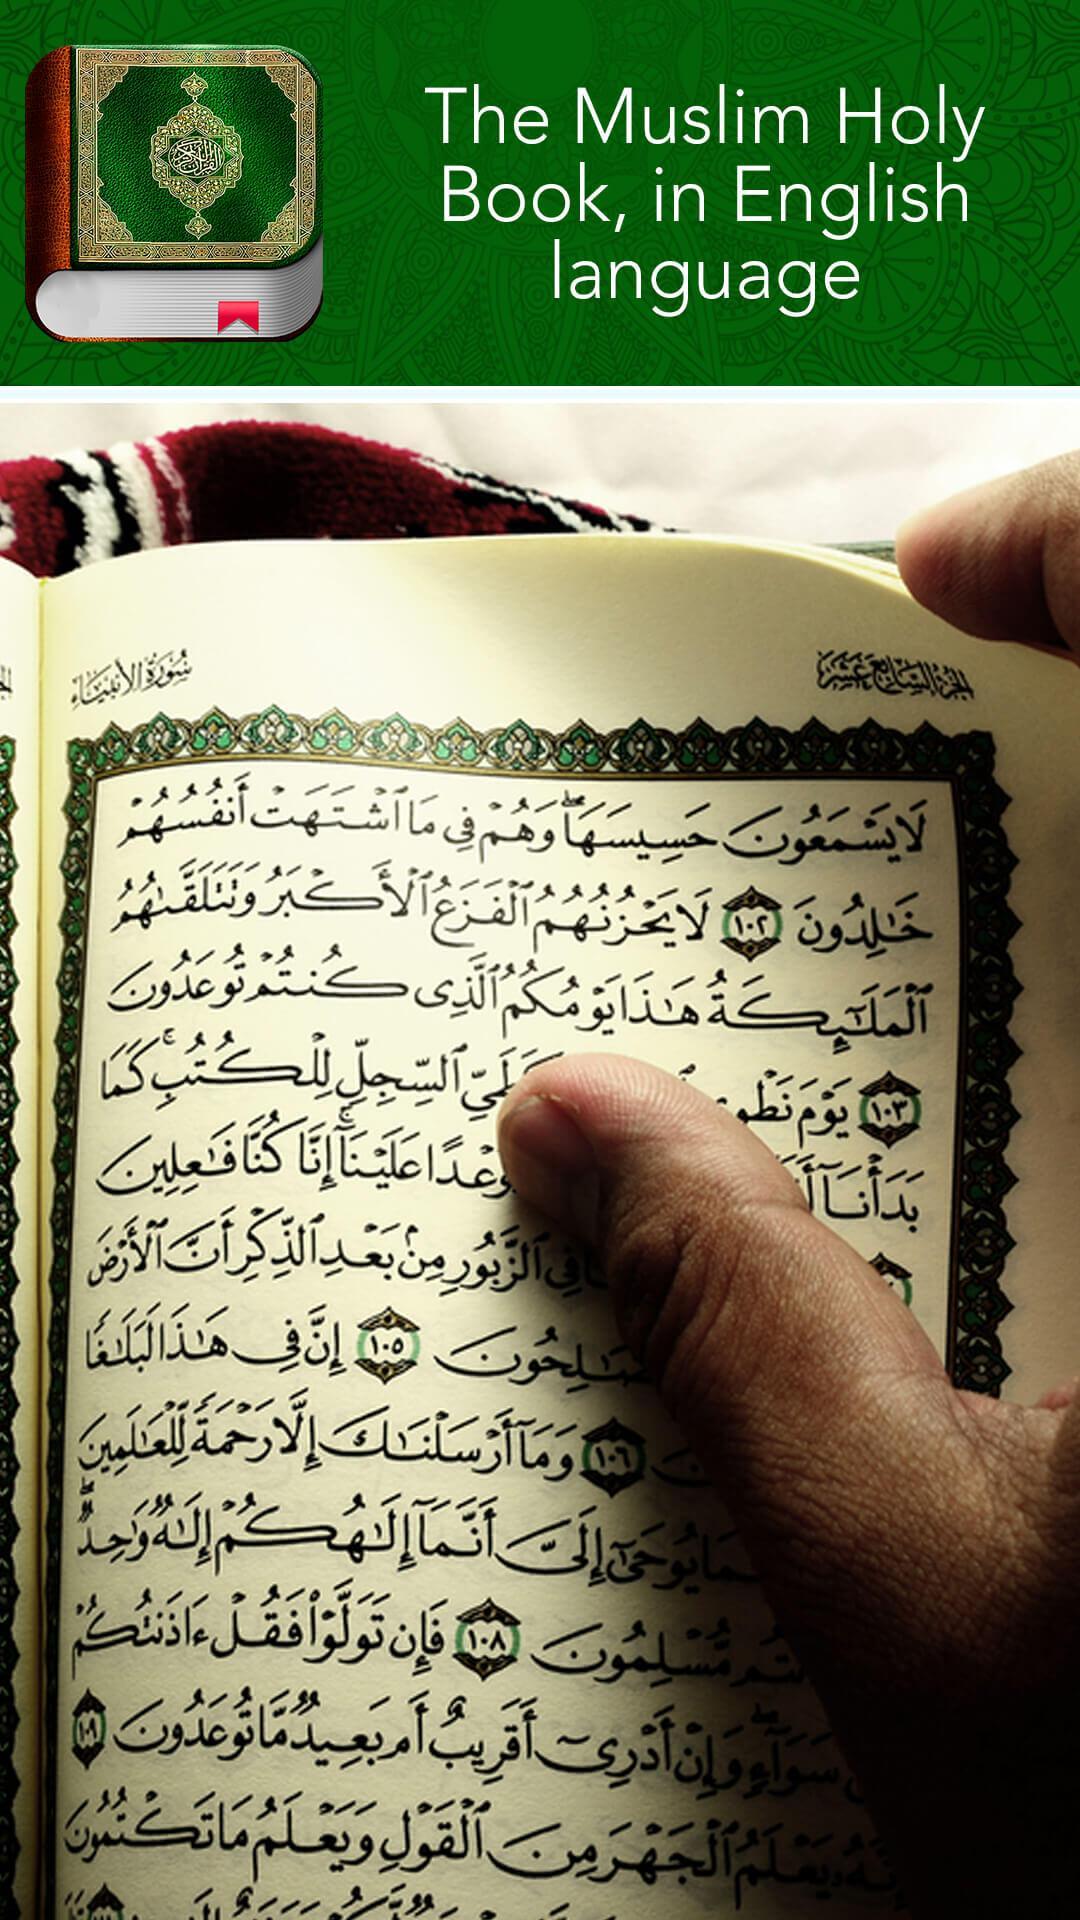 The Muslim Holy
Book, in English
language
سُورَةُ الأَنبِيَاءِ
الجُزءُ السَّابِعَ عَشَرَ
لَا يَسْمَعُونَ حَسِيسَهَا ۖ وَهُمْ فِي مَا ٱشْتَهَتْ أَنفُسُهُمْ
خَٰلِدُونَ ١٠٢ لَا يَحْزُنُهُمُ ٱلْفَزَعُ ٱلْأَكْبَرُ وَتَتَلَقَّىٰهُمُ
ٱلْمَلَٰٓئِكَةُ هَٰذَا يَوْمُكُمُ ٱلَّذِى كُنتُمْ تُوعَدُونَ
١٠٣ يَوْمَ ٱلسِّجِلِّ لِلْكُتُبِ ۚ كَمَا
بَدَأْنَا وَعْدًا عَلَيْنَآ ۚ إِنَّا كُنَّا فَٰعِلِينَ
ٱلزَّبُورِ مِنۢ بَعْدِ ٱلذِّكْرِ أَنَّ ٱلْأَرْضَ
١٠٥ إِنَّ فِي هَٰذَا لَبَلَٰغًا
١٠٦ وَمَآ أَرْسَلْنَٰكَ إِلَّا رَحْمَةً لِّلْعَٰلَمِينَ
يُوحَىٰٓ إِلَىَّ أَنَّمَآ إِلَٰهُكُمْ إِلَٰهٌ وَٰحِدٌ ۖ
مُّسْلِمُونَ ١٠٨ فَإِن تَوَلَّوْا۟ فَقُلْ ءَاذَنتُكُمْ
سَوَآءٍ ۖ وَإِنْ أَدْرِىٓ أَقَرِيبٌ أَم بَعِيدٌ مَّا تُوعَدُونَ ١٠٩
يَعْلَمُ ٱلْجَهْرَ مِنَ ٱلْقَوْلِ وَيَعْلَمُ مَا تَكْتُمُونَ